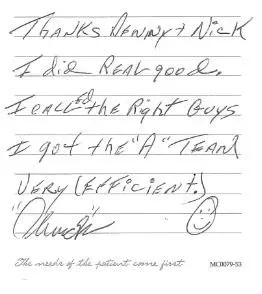 THANKS DENNY + NICK
I did REAL good.
I CALLED the Right Guys
I got the "A" TEAM
VERY (EFFICIENT.)
"Chuck"
The needs of the patient come first.
MC0079-53